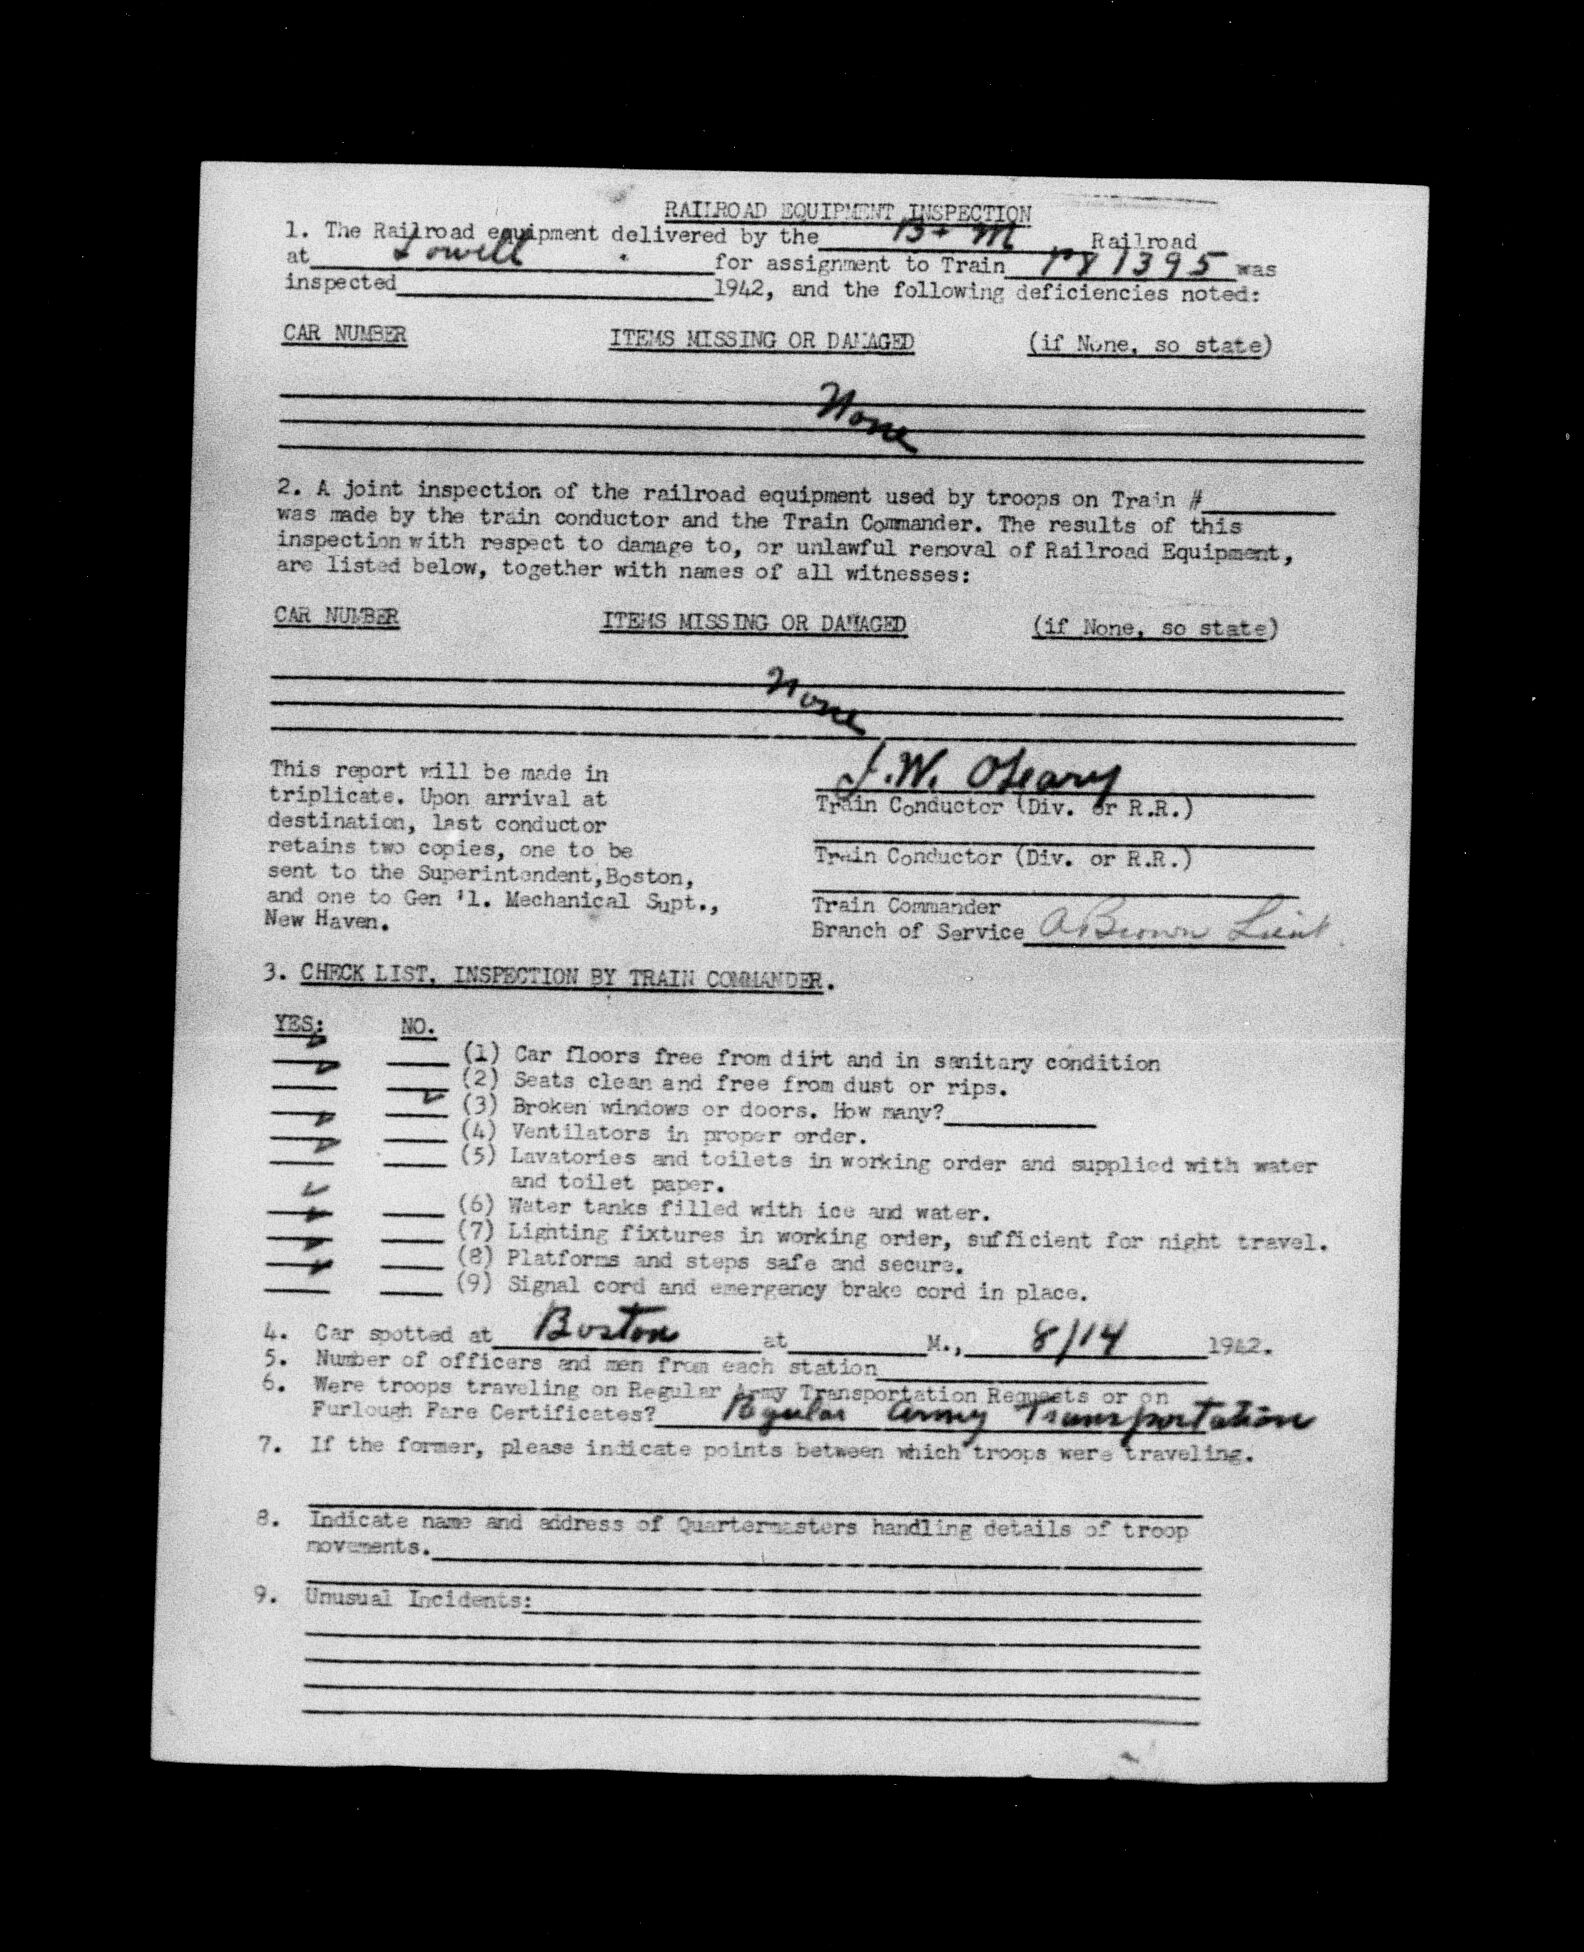 RAILROAD EQUIPMENT INSPECTION
1. The Railroad equipment delivered by the B + M Railroad
at Lowell for assignment to Train 1395 was
inspected 1942, and the following deficiencies noted:
CAR NUMBER ITEMS MISSING OR DAMAGED (if None, so state)
None
2. A joint inspection of the railroad equipment used by troops on Train #
was made by the train conductor and the Train Commander. The results of this
inspection with respect to damage to, or unlawful removal of Railroad Equipment,
are listed below, together with names of all witnesses:
CAR NUMBER ITEMS MISSING OR DAMAGED (if None, so state)
None
This report will be made in
triplicate. Upon arrival at
destination, last conductor
retains two copies, one to be
sent to the Superintendent, Boston,
and one to Gen'l. Mechanical Supt.,
New Haven.
J.W. OLeary
Train Conductor (Div. or R.R.)
Train Conductor (Div. or R.R.)
Train Commander
Branch of Service A Brown Lieut
3. CHECK LIST. INSPECTION BY TRAIN COMMANDER.
YES: NO.
(1) Car floors free from dirt and in sanitary condition
(2) Seats clean and free from dust or rips.
(3) Broken windows or doors. How many?
(4) Ventilators in proper order.
(5) Lavatories and toilets in working order and supplied with water
and toilet paper.
(6) Water tanks filled with ice and water.
(7) Lighting fixtures in working order, sufficient for night travel.
(8) Platforms and steps safe and secure.
(9) Signal cord and emergency brake cord in place.
4. Car spotted at Boston at M., 8/14 1942.
5. Number of officers and men from each station
6. Were troops traveling on Regular Army Transportation Requests or on
Furlough Fare Certificates? Regular Army Transportation
7. If the former, please indicate points between which troops were traveling.
8. Indicate name and address of Quartermasters handling details of troop
movements.
9. Unusual Incidents: